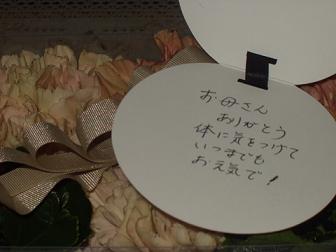 お母さん
ありがとう
体に気をつけて
いつまでも
お元気で!